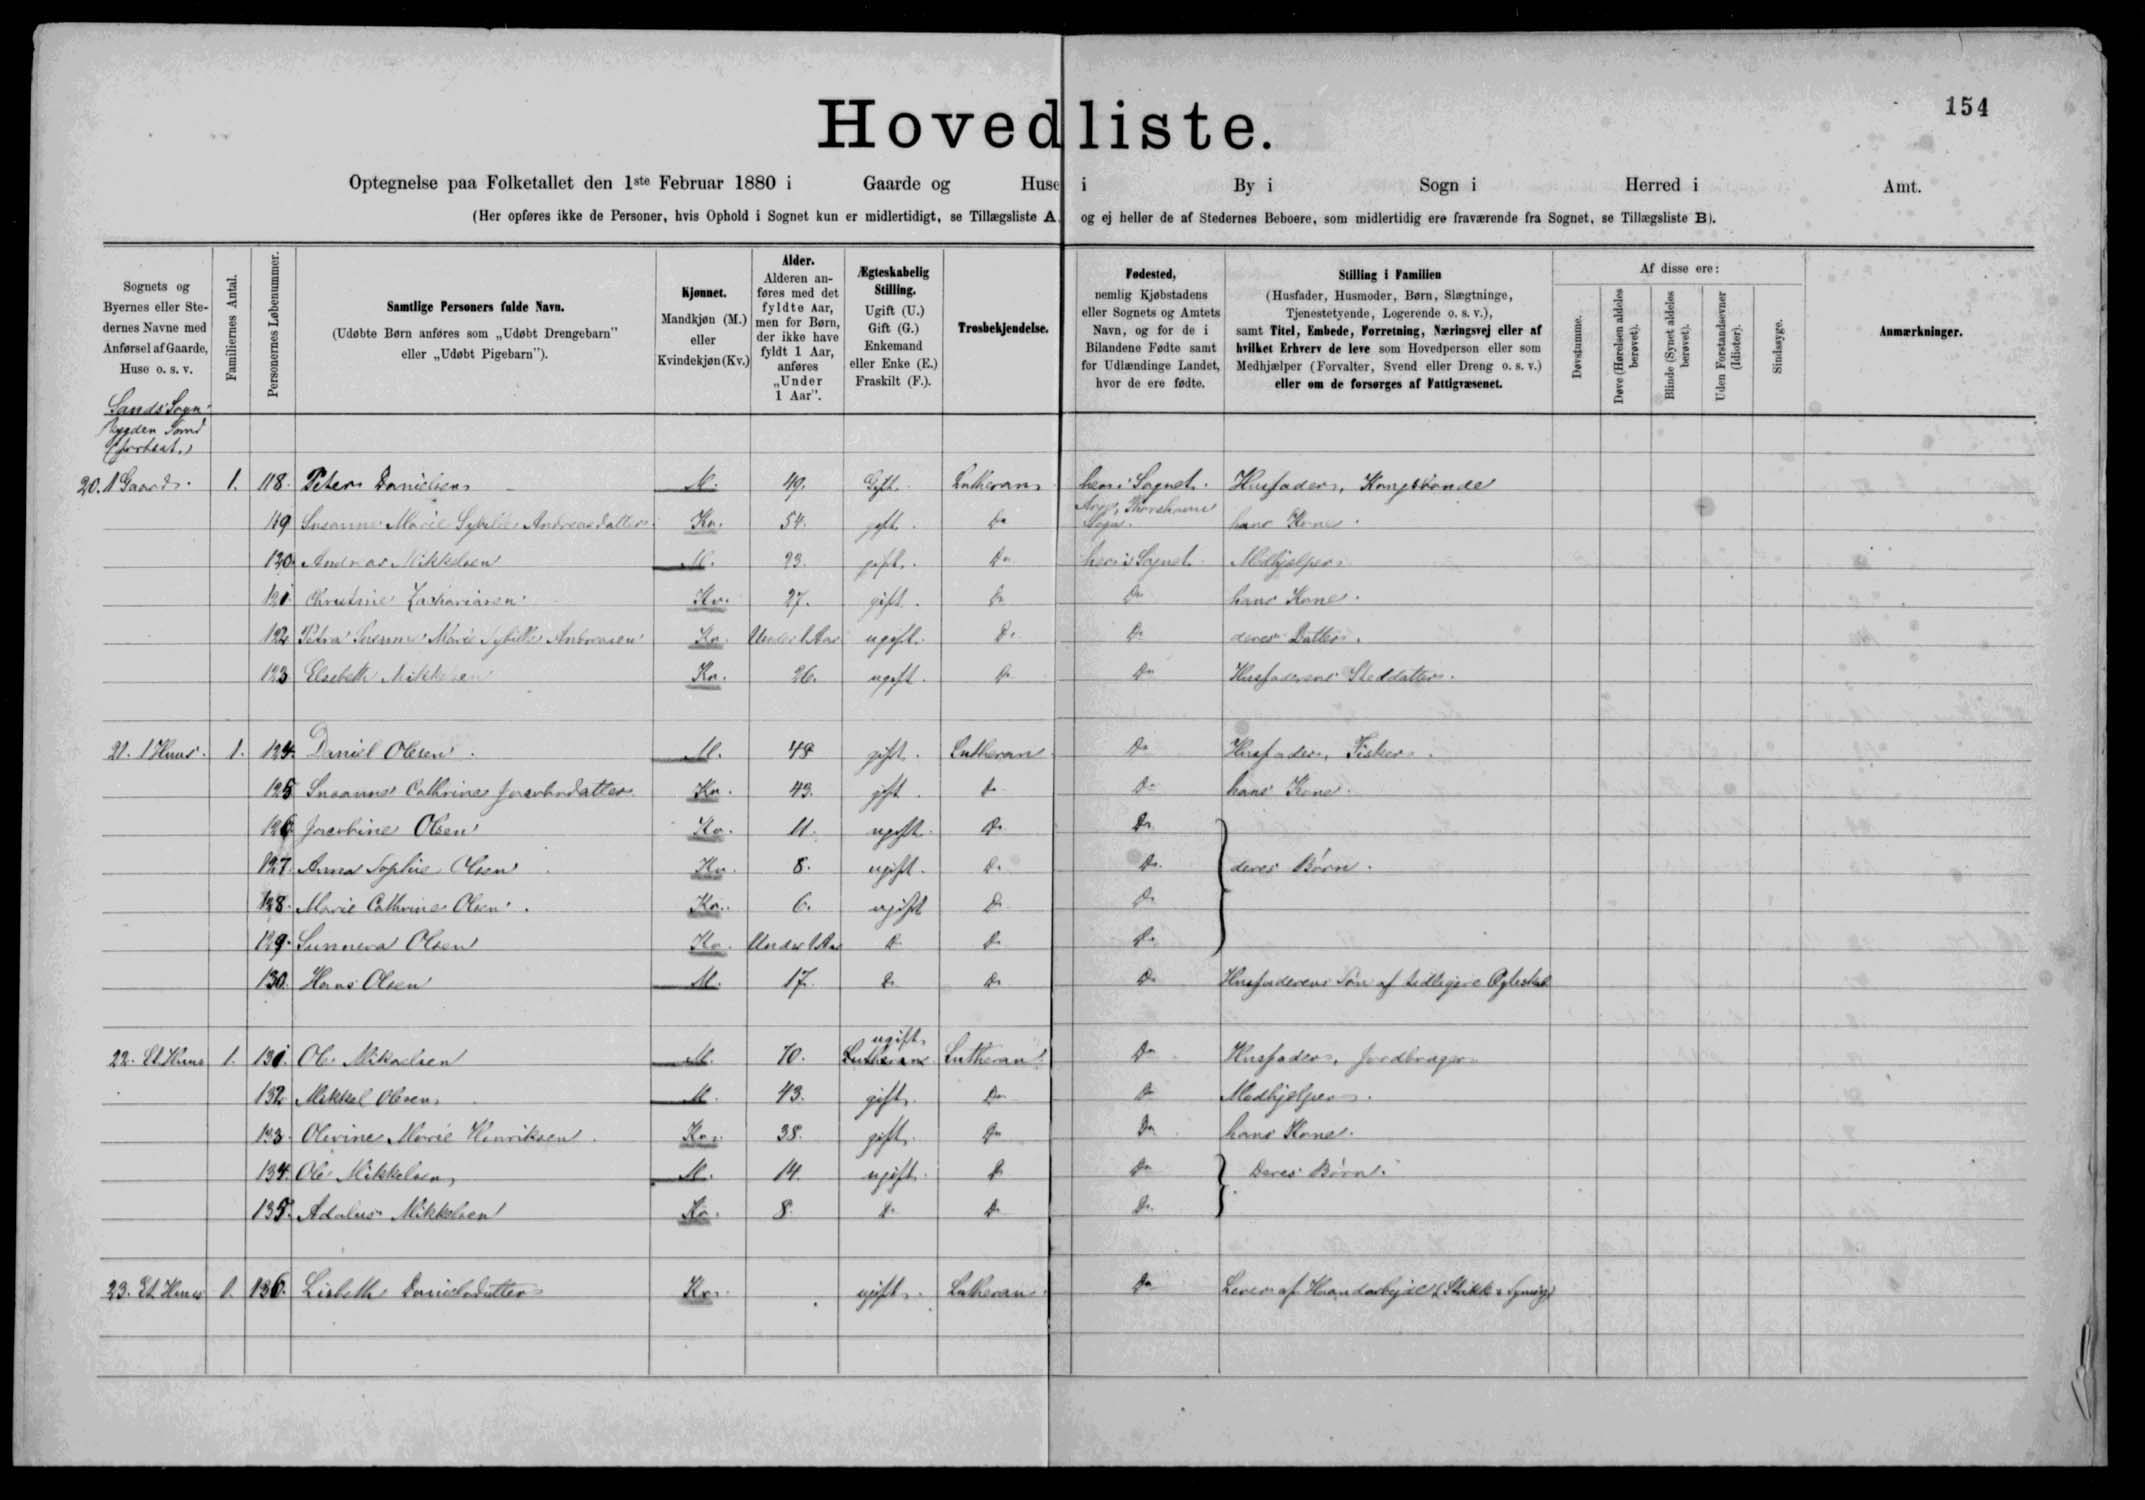 154
Hovedliste.
Optegnelse paa Folketallet den 1ste Februar 1880 i Gaarde og Huse i By i Sogn i Herred i Amt.
(Her opføres ikke de Personer, hvis Ophold i Sognet kun er midlertidigt, se Tillægsliste A og ej heller de af Stedernes Beboere, som midlertidig ere fraværende fra Sognet, se Tillægsliste B).
Sognets og Byernes eller Stedernes Navne med Anførsel af Gaarde, Huse o. s. v.
Familiernes Antal.
Personernes Løbenummer.
Samtlige Personers fulde Navn.
(Udøbte Børn anføres som „Udøbt Drengebarn" eller „Udøbt Pigebarn").
Kjønnet.
Mandkjøn (M.) eller Kvindekjøn (Kv.)
Alder.
Alderen anføres med det fyldte Aar, men for Børn, der ikke have fyldt 1 Aar, anføres „Under 1 Aar".
Ægteskabelig Stilling.
Ugift (U.) Gift (G.) Enkemand eller Enke (E.) Fraskilt (F.).
Trosbekjendelse.
Fødested,
nemlig Kjøbstadens eller Sognets og Amtets Navn, og for de i Bilandene Fødte samt for Udlændinge Landet, hvor de ere fødte.
Stilling i Familien
(Husfader, Husmoder, Børn, Slægtninge, Tjenestetyende, Logerende o. s. v.), samt Titel, Embede, Forretning, Næringsvej eller af hvilket Erhverv de leve som Hovedperson eller som Medhjælper (Forvalter, Svend eller Dreng o. s. v.) eller om de forsørges af Fattigvæsenet.
Af disse ere:
Døvstumme.
Døve (Hørelsen aldeles berøvet).
Blinde (Synet aldeles berøvet).
Uden Forstandsevner (Idioter).
Sindssyge.
Anmærkninger.
Sands Sogn
Bygden Sand
(fortsat.)
20. 1 Gaard. 1. 118. Peter Danielsen M. 49. Gift. Lutheran her i Sognet. Husfader, Kongsbonde
119 Susanne Marie Sybille Andreasdatter Kv. 54. gift. Do Thorshavn Sogn. hans Kone.
120. Andreas Mikkelsen M. 23. gift. Do her i Sognet. Medhjelper
121. Christine Zachariasen Kv. 27. gift. Do Do hans Kone.
122. Petra Susanne Marie Sybille Andreasen Kv. Under 1 Aar ugift. Do Do deres Datter.
123 Elsebeth Mikkelsen Kv. 26. ugift. Do Do Husfaderens Steddatter.
21. 1 Huus. 1. 124. Daniel Olesen. M. 48 gift. Lutheran Do Husfader, Fisker.
125 Susanne Cathrine Jacobsdatter Kv. 43. gift. Do Do hans Kone.
126 Jacobine Olsen Kv. 11. ugift. Do Do
127. Anna Sophie Olsen Kv. 8. ugift. Do Do deres Børn.
128. Marie Cathrine Olsen. Kv. 6. ugift Do Do
129. Sunneva Olsen Kv. Under 1 Aar Do Do Do
130. Hans Olsen M. 17. Do Do Do Husfaderens Søn af tidligere Ægteskab
ugift
22. Et Huus 1. 131. Ole Mikaelsen M. 70. Lutheran Lutheran Do Husfader, Jordbruger
132 Mikkel Olesen M. 43. gift. Do Do Medhjelper.
133. Olevine Marie Henriksen. Kv. 38. gift. Do Do hans Kone.
134. Ole Mikkelsen M. 14. ugift. Do Do Deres Børn.
135. Adalus Mikkelsen Kv. 8. Do Do Do
23. Et Huus 1. 136. Lisbeth Danielsdatter Kv. ugift. Lutheran Do Lever af Haandarbejde (Strikk